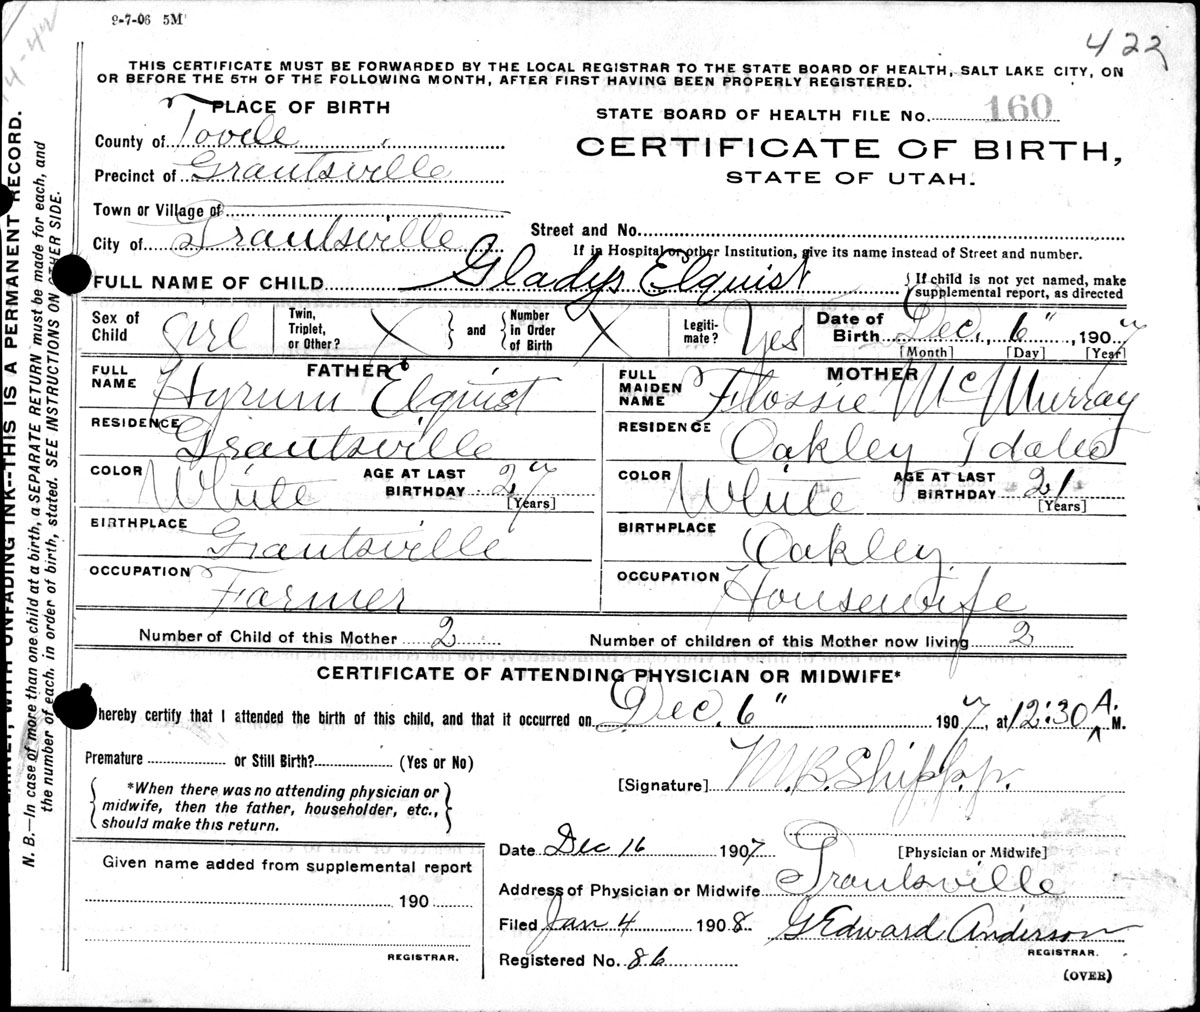 9-7-06 5M
422
THIS CERTIFICATE MUST BE FORWARDED BY THE LOCAL REGISTRAR TO THE STATE BOARD OF HEALTH, SALT LAKE CITY, ON
OR BEFORE THE 5TH OF THE FOLLOWING MONTH, AFTER FIRST HAVING BEEN PROPERLY REGISTERED.
PLACE OF BIRTH
County of Tooele
Precinct of Grantsville
Town or Village of
City of Grantsville
STATE BOARD OF HEALTH FILE No. 160
CERTIFICATE OF BIRTH,
STATE OF UTAH.
Street and No.
If in Hospital or other Institution, give its name instead of Street and number.
FULL NAME OF CHILD Gladys Elquist
If child is not yet named, make
supplemental report, as directed
Sex of Child girl
Twin, Triplet, or Other? X and Number in Order of Birth X
Legitimate? Yes
Date of Birth Dec. 6", 1907
[Month] [Day] [Year]
FATHER
FULL NAME Hyrum Elquist
RESIDENCE Grantsville
COLOR White AGE AT LAST BIRTHDAY 27
[Years]
BIRTHPLACE Grantsville
OCCUPATION Farmer
MOTHER
FULL MAIDEN NAME Flossie McMurray
RESIDENCE Oakley Idaho
COLOR White AGE AT LAST BIRTHDAY 21
[Years]
BIRTHPLACE Oakley
OCCUPATION Housewife
Number of Child of this Mother 2 Number of children of this Mother now living 2
CERTIFICATE OF ATTENDING PHYSICIAN OR MIDWIFE*
hereby certify that I attended the birth of this child, and that it occurred on Dec. 6" 1907, at 12:30 A. M.
Premature or Still Birth? (Yes or No)
*When there was no attending physician or
midwife, then the father, householder, etc.,
should make this return.
[Signature] M.B. Shipp jr.
[Physician or Midwife]
Given name added from supplemental report
190
REGISTRAR.
Date Dec 16 1907
Address of Physician or Midwife Grantsville
Filed Jan 4 1908 G Edward Anderson
REGISTRAR.
Registered No. 86
(OVER)
WITH UNFADING INK--THIS IS A PERMANENT RECORD.
N. B.—In case of more than one child at a birth, a SEPARATE RETURN must be made for each, and
the number of each, in order of birth, stated. SEE INSTRUCTIONS ON OTHER SIDE.